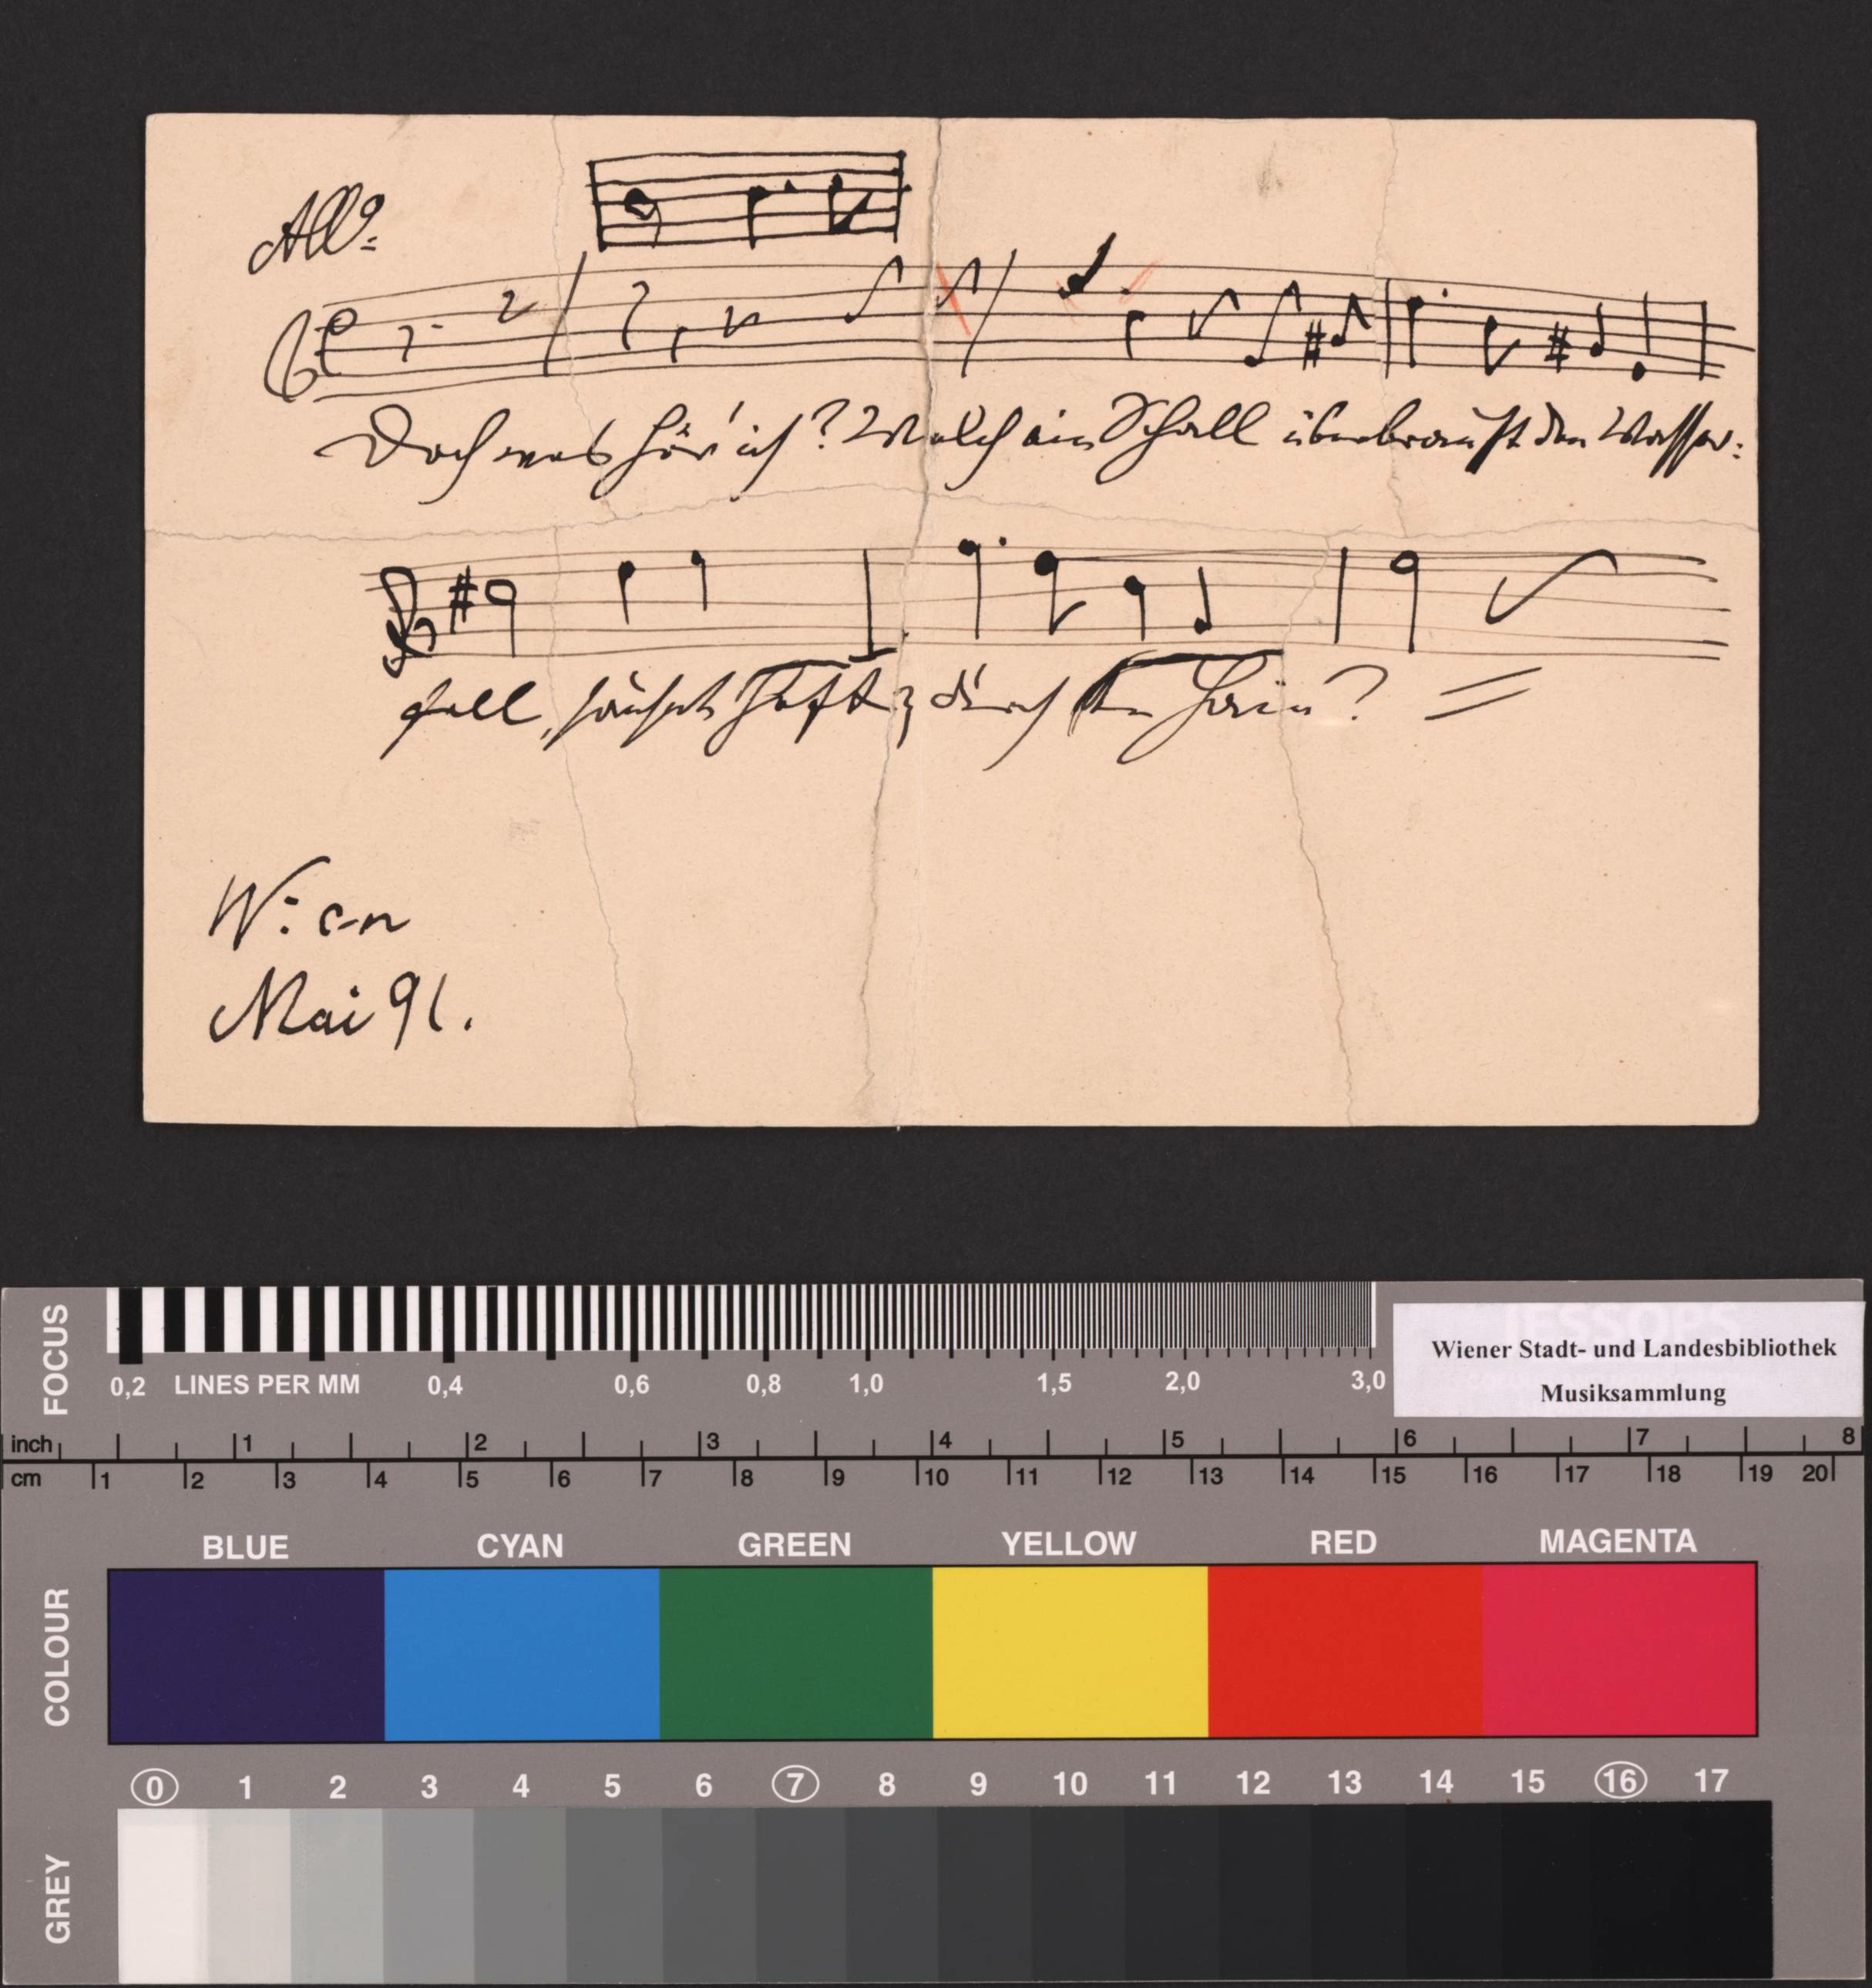 Allo.
Doch was hör' ich? Welch ein Schall überbraust den Wasser:
fall, durch Hain?
Wien
Mai 91.
FOCUS
0,2 LINES PER MM 0,4 0,6 0,8 1,0 1,5 2,0 3,0
Wiener Stadt- und Landesbibliothek
Musiksammlung
inch 1 2 3 4 5 6 7 8
cm 1 2 3 4 5 6 7 8 9 10 11 12 13 14 15 16 17 18 19 20
BLUE CYAN GREEN YELLOW RED MAGENTA
COLOUR
0 1 2 3 4 5 6 7 8 9 10 11 12 13 14 15 16 17
GREY